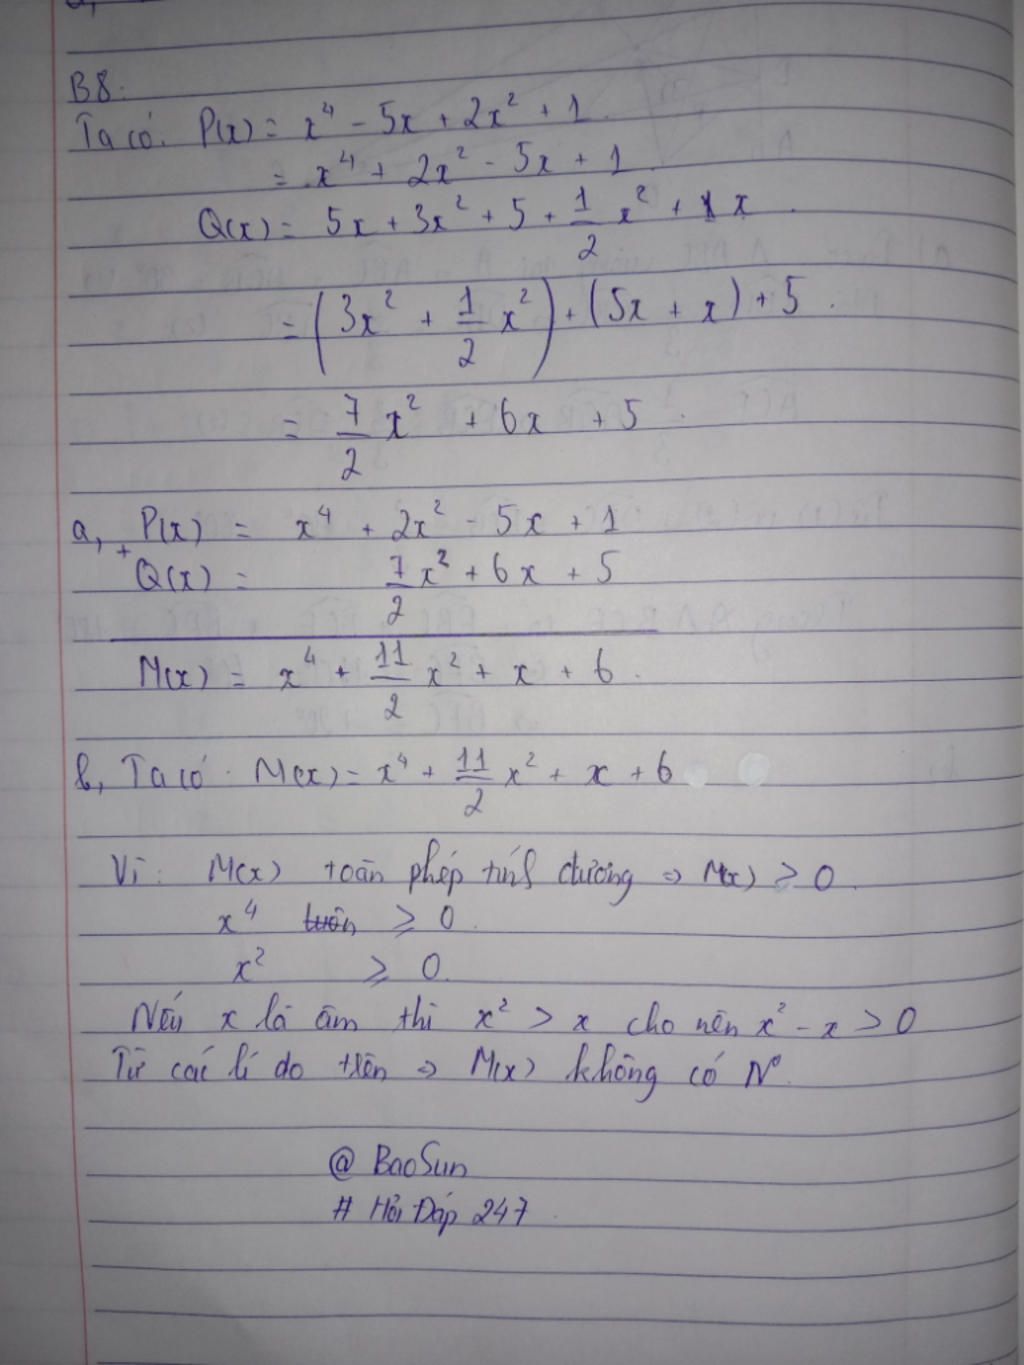 B8:
Ta có: P(x) = x⁴ - 5x + 2x² + 1
= x⁴ + 2x² - 5x + 1
Q(x) = 5x + 3x² + 5 + 1/2 x² + x
= (3x² + 1/2 x²) + (5x + x) + 5
= 7/2 x² + 6x + 5
a, P(x) = x⁴ + 2x² - 5x + 1
+
Q(x) = 7/2 x² + 6x + 5
M(x) = x⁴ + 11/2 x² + x + 6
b, Ta có: M(x) = x⁴ + 11/2 x² + x + 6
Vì: M(x) toàn phép tính dương => M(x) ≥ 0
x⁴ luôn ≥ 0
x² ≥ 0
Nếu x là âm thì x² > x cho nên x² - x > 0
Từ các lí do trên => M(x) không có N⁰
@ BaoSun
# Hỏi Đáp 247